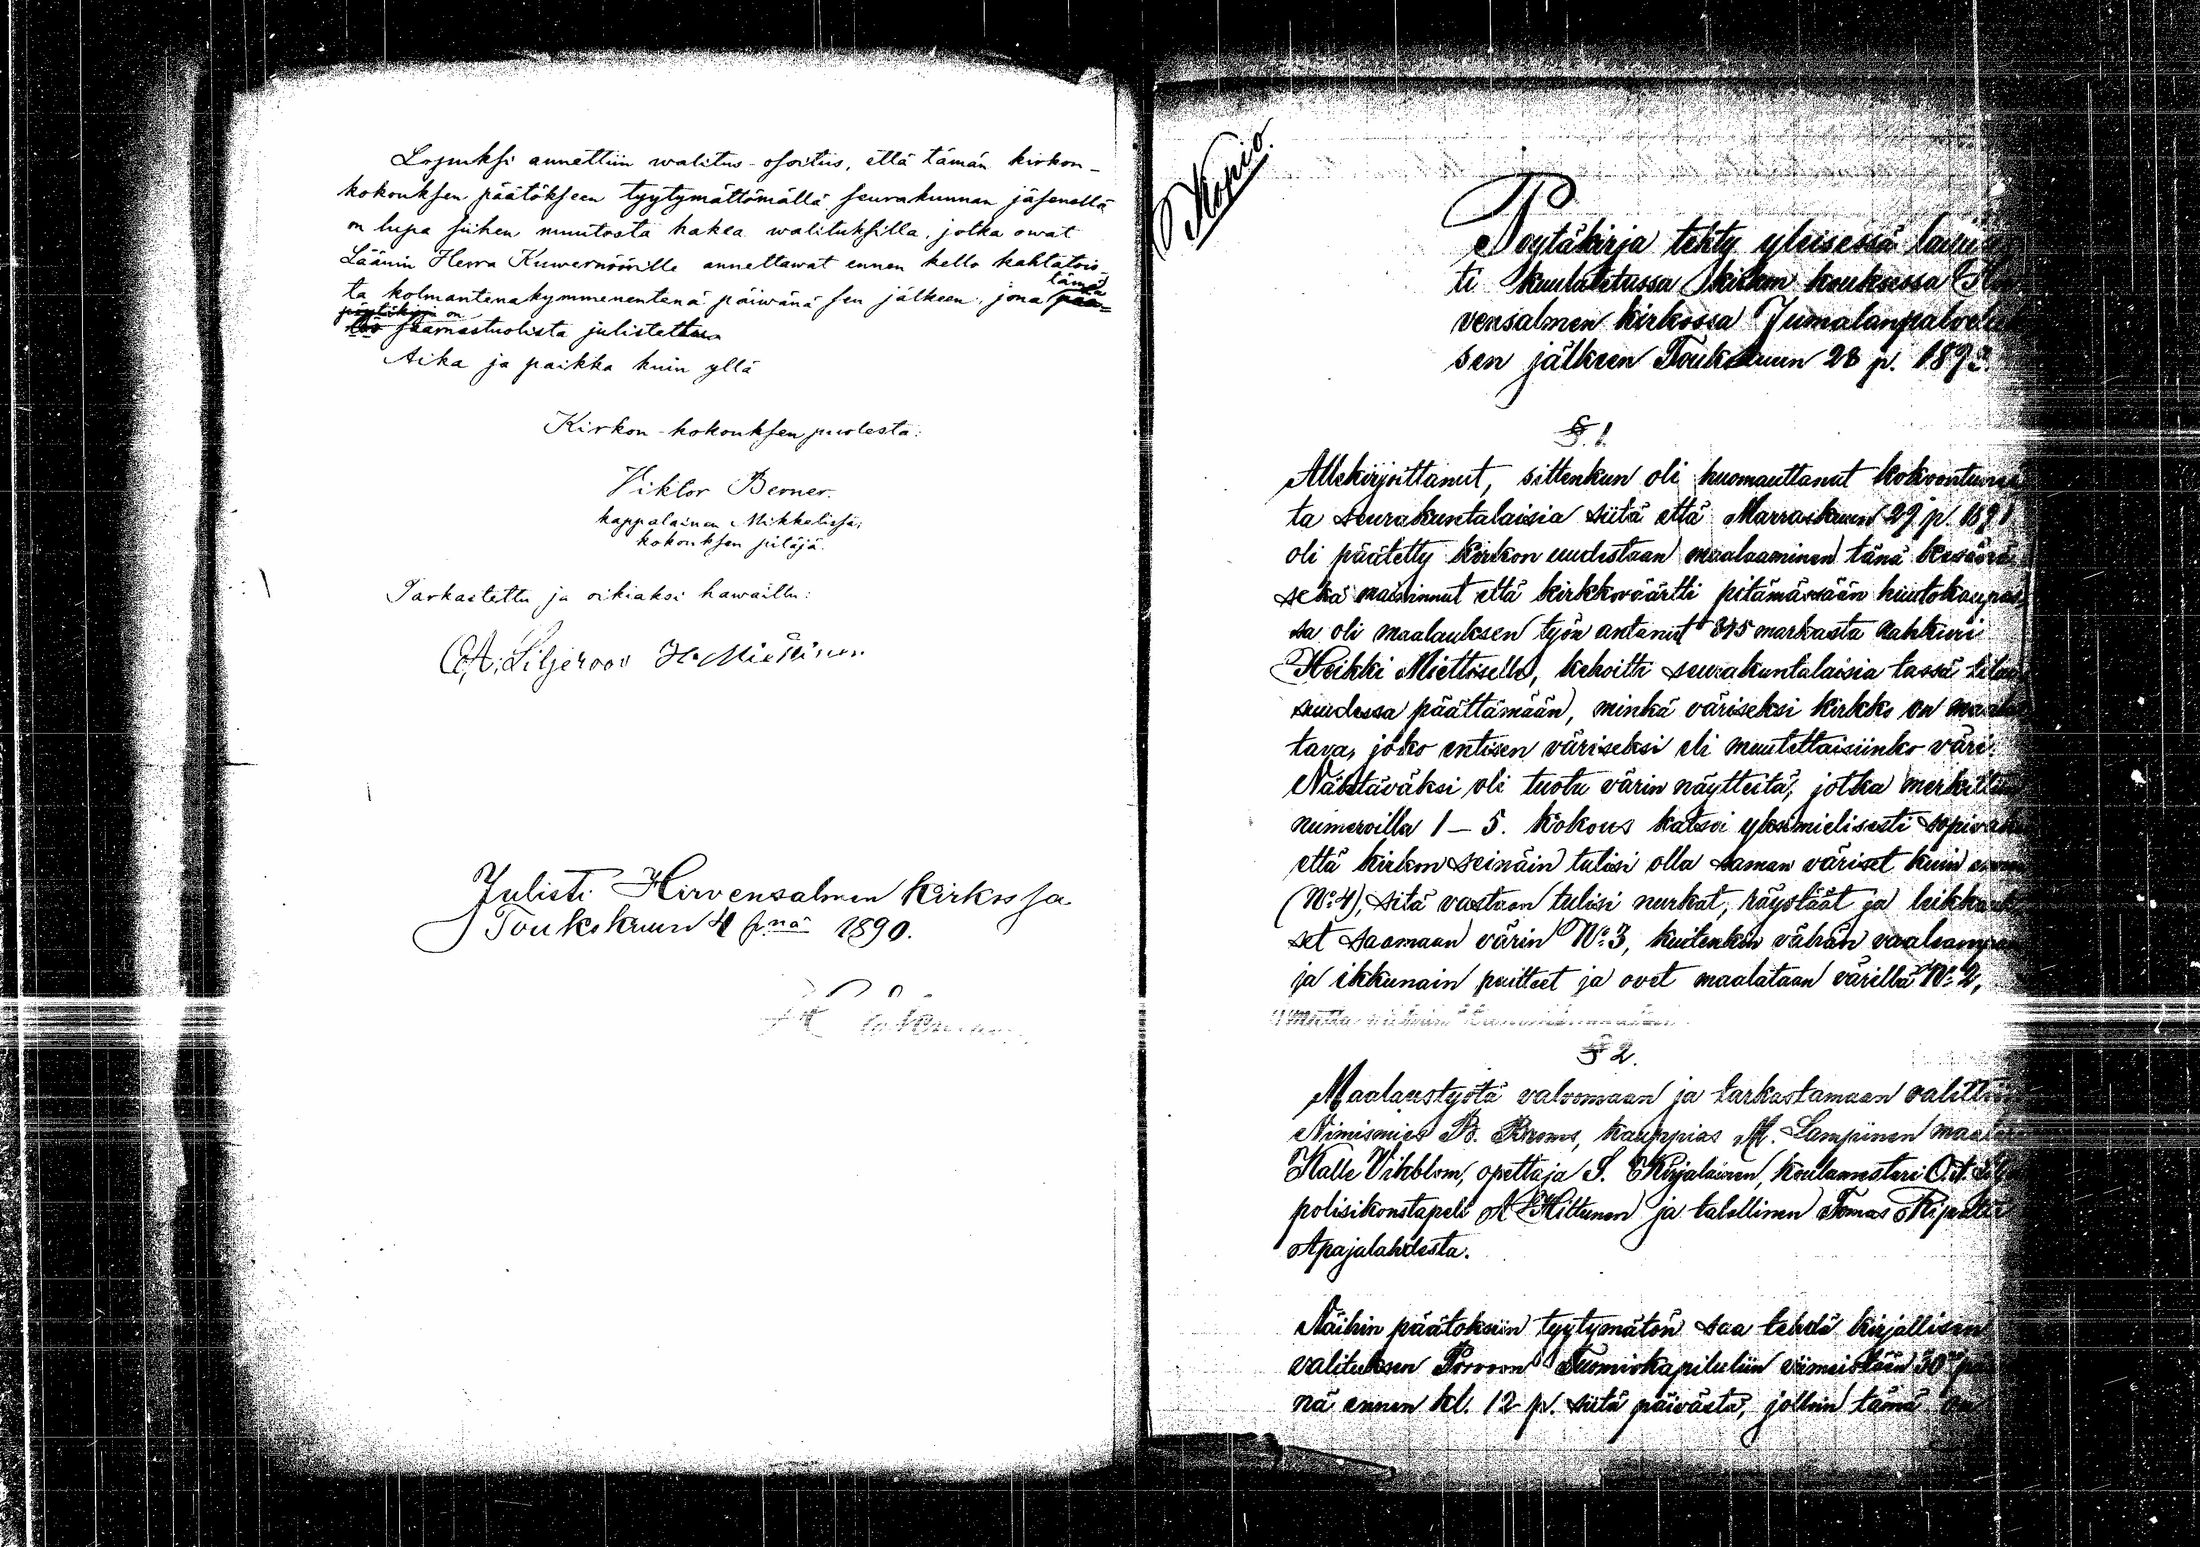 Lopuksi annettiin walitus-osoitus, että tämän kirkon-
kokouksen päätökseen tyytymättömällä seurakunnan jäsenellä
on lupa siihen muutosta hakea walituksilla, jotka owat
Läänin Herra Kuwernöörille annettawat ennen kello kahtatois-
ta kolmantenakymmenentenä päiwänä sen jälkeen, jona
tämä
on
saarnastuolista julistettu
Aika ja paikka kuin yllä
Kirkon-kokouksen puolesta:
Viktor Berner.
kappalainen Mikkelissä,
kokouksen pitäjä.
Tarkastettu ja oikiaksi hawaittu:
O. A. Liljeroos H. Miettinen
Julisti Hirvensalmen kirkossa
Toukokuun 4 p:nä 1890.
Kopio.
Pöytäkirja tehty yleisessä
ti kuulutetussa kirkon kouksessa
vensalmen kirkossa Jumalanpalveluk
sen jälkeen Toukokuun 28 p. 189
§ 1.
Allekirjoittanut, sittenkun oli huomauttanut kokoontunei
ta seurakuntalaisia siitä että Marraskuun 29 p. 1891
oli päätetty kirkon uudestaan maalaaminen tänä kesänä
sekä maininnut että kirkkoväärtti pitämässään huutokaupas
sa oli maalauksen työn antanut 345 markasta nahkuri
Heikki Miettiselle, kehoitti seurakuntalaisia tässä tilai
suudessa päättämään, minkä väriseksi kirkko on maalat
tava, joko entisen väriseksi eli muutettaisiinko väri.
Nähtäväksi oli tuotu värin näytteitä, jotka merkittiin
numeroilla 1 – 5. Kokous katsoi yksimielisesti sopivaksi
että kirkon seinäin tulisi olla saman väriset kuin
(N:o 4), sitä vastoin tulisi nurkat, räystäät ja leikkauk
set saamaan värin N:o 3, kuitenkin vähän vaaleampana
ja ikkunain puitteet ja ovet maalataan värillä N:o 2,
§ 2.
Maalaustyötä valvomaan ja tarkastamaan valittiin
Nimismies B. kauppias M. Lampinen
Kalle Vikblom, opettaja S. koulumestari O. A.
polisikonstapeli A Hiltunen ja talollinen Tomas
Apajalahdesta.
Näihin päätöksiin tyytymätön saa tehdä kirjallisen
valituksen Porvoon Tuomiokapituliin viimeistään 30
nä ennen kl. 12 p. siitä päivästä, jolloin tämä on